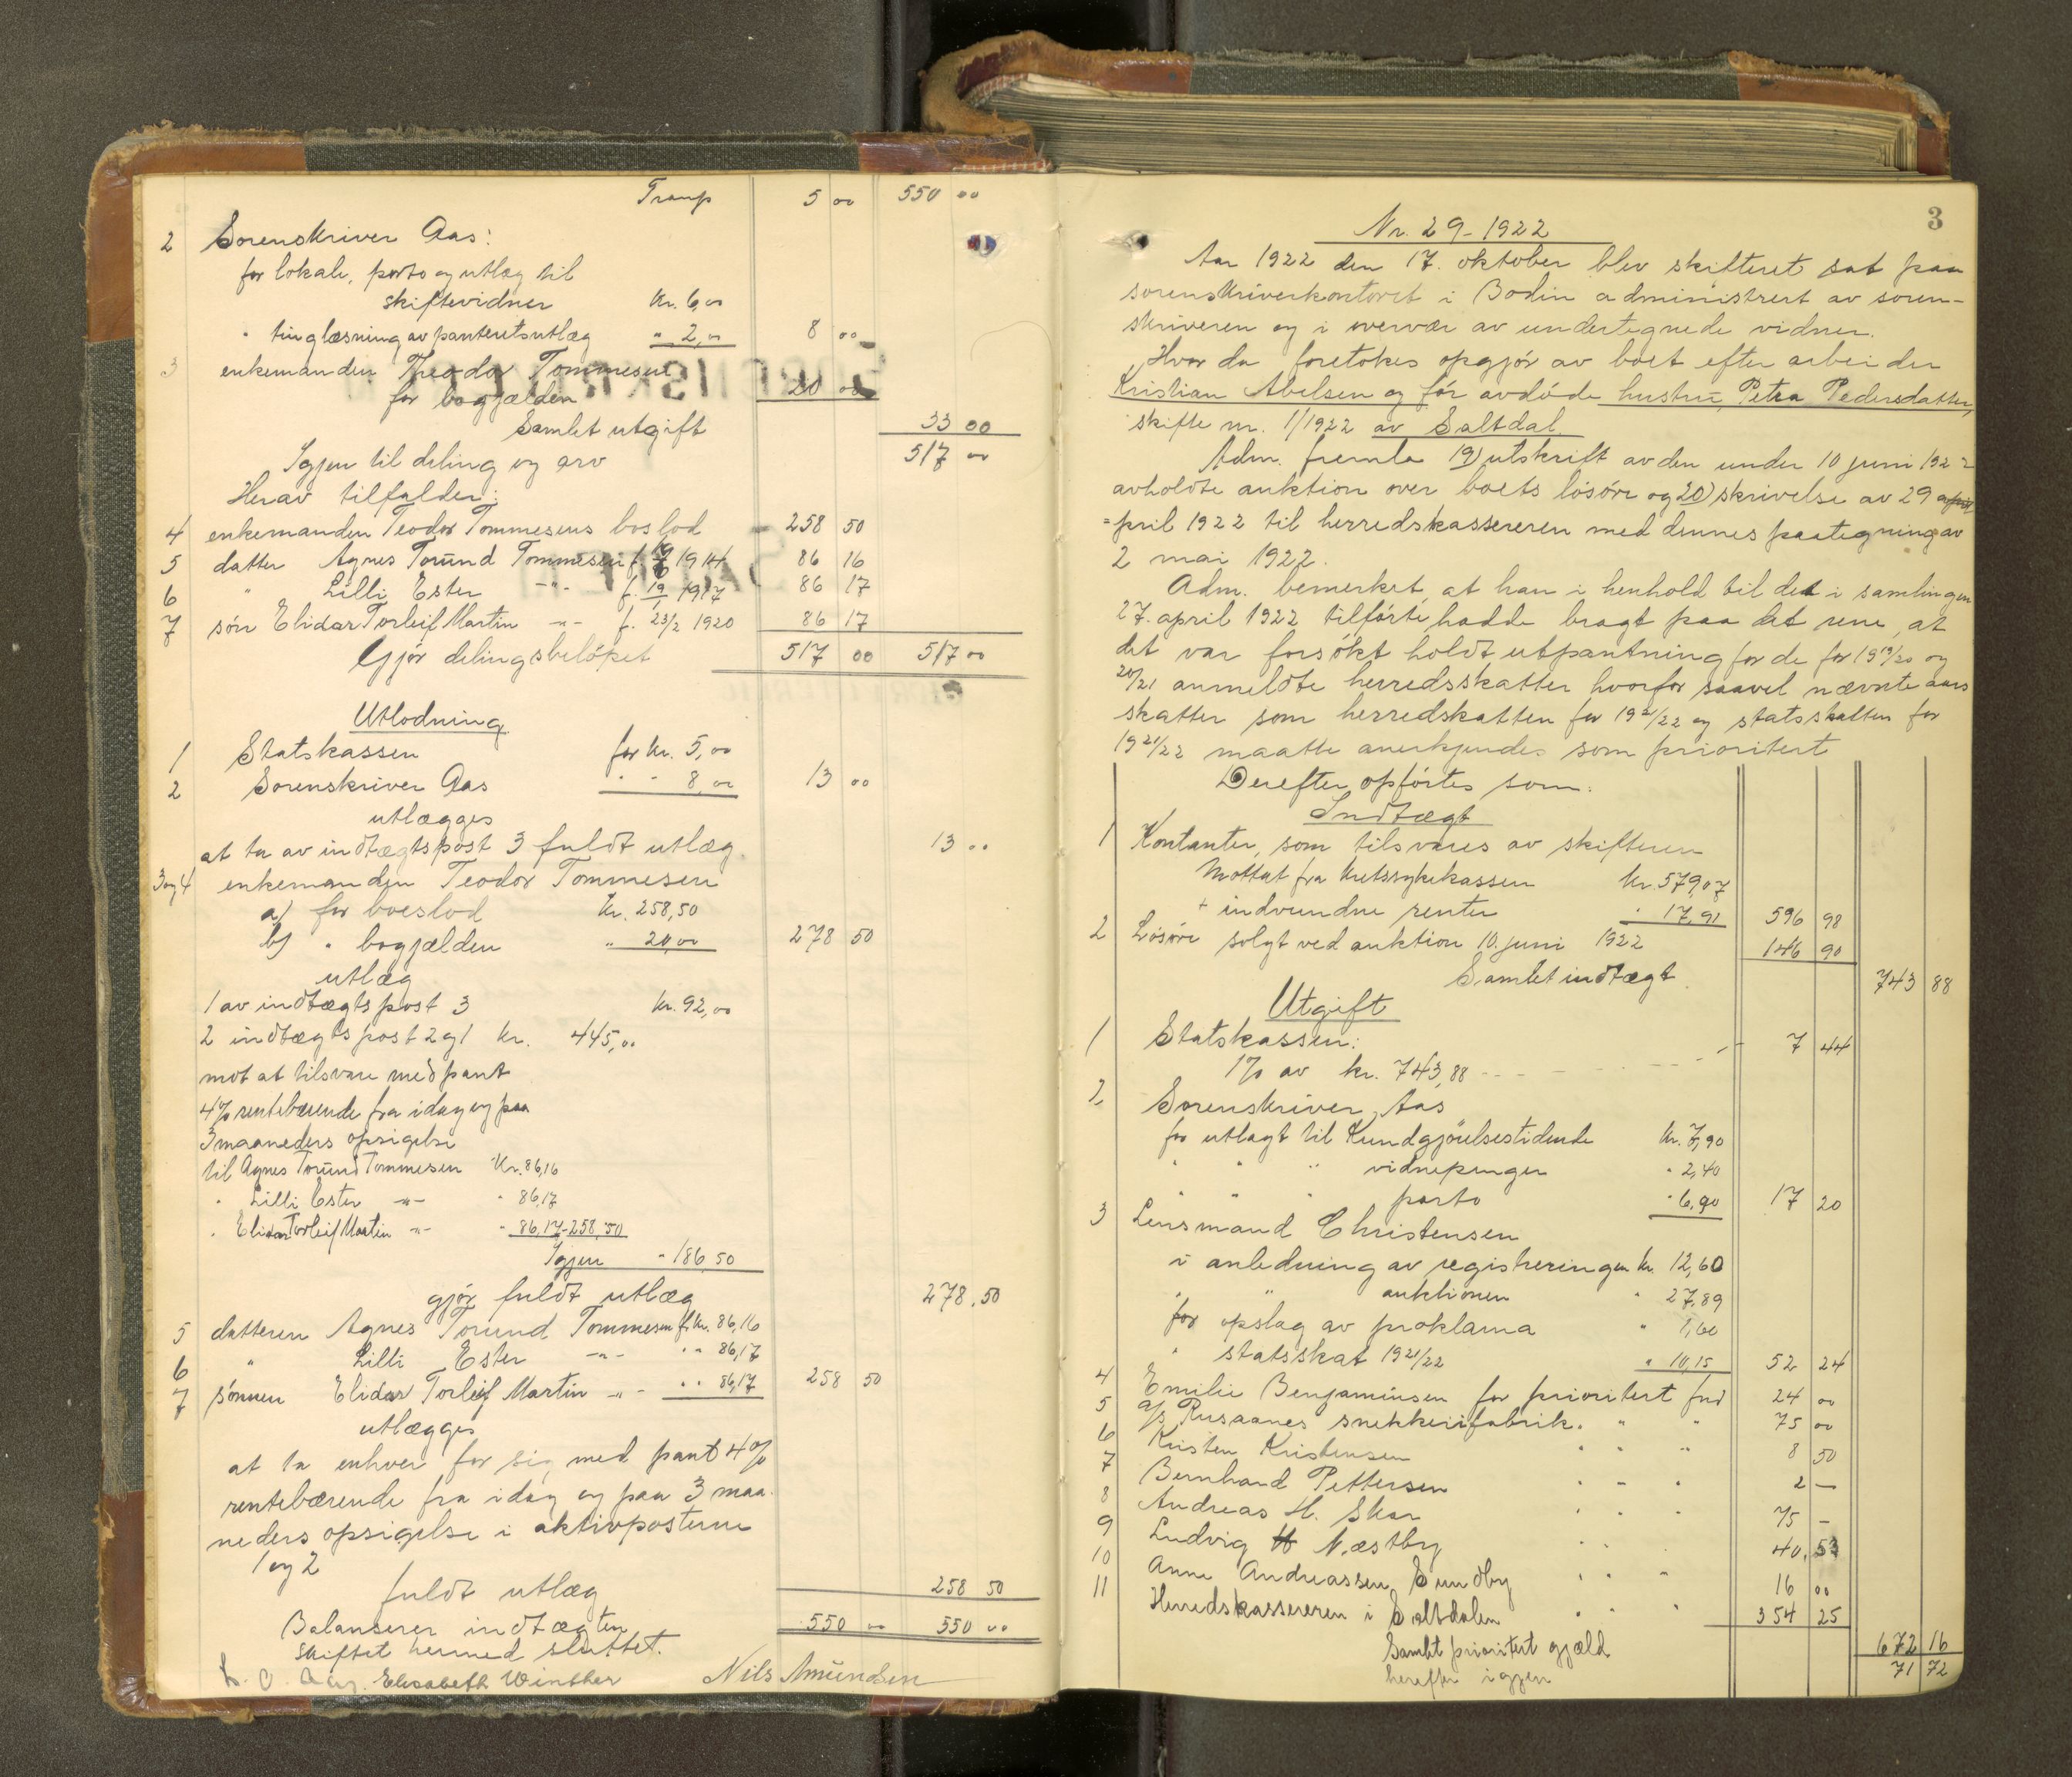 Transp 5 00 550 00
2 Sorenskriver Aas:
for lokale, porto og utlæg til
skiftevidner kr. 6,00
" tinglæsning av panteretsutlæg " 2,00 8 00
3 enkemanden Theodor Tommesen
for bogjælden 20 00
Samlet utgift 33 00
Igjen til deling og arv 517 00
Herav tilfalder:
4 enkemanden Teodor Tommesens boslod 258 50
5 datter Agnes Torund Tommesen f. 1914 86 16
6 " Lilli Ester -"- f. 19/1 1917 86 17
7 søn Elidar Torleif Martin -"- f. 23/2 1920 86 17
Gjør delingsbeløpet 517 00 517 00
Utlodning
1 Statskassen for kr. 5,00
2 Sorenskriver Aas " " 8,00 13 00
utlægges
at ta av indtægtspost 3 fuldt utlæg. 13 00
3 og 4 enkemanden Teodor Tommesen
a) for boeslod kr. 258,50
b) " bogjælden " 20,00 278 50
utlæg
1 av indtægtspost 3 kr. 92,00
2 indtægtspost 2 og 1 kr. 445,00
mot at tilsvare med pant
4% rentebærende fra idag og paa
3 maaneders opsigelse
til Agnes Torund Tommesen kr. 86,16
" Lilli Ester -"- " 86,17
" Elidar Torleif Martin -"- " 86,17 - 258,50
Igjen " 186,50
gjør fuldt utlæg 278,50
5 datteren Agnes Torund Tommesen f. kr. 86,16
6 " Lilli Ester -"- " " 86,17
7 sønnen Elidar Torleif Martin -"- " " 86,17 258 50
utlægges
at ta enhver for sig med pant 4%
rentebærende fra idag og paa 3 maa-
neders opsigelse i aktivposterne
1 og 2
fuldt utlæg 258 50
Balanserer indtægten 550 00 550 00
Skiftet hermed sluttet.
Elisabeth Winther Nils Amundsen
3
Nr. 29 - 1922
Aar 1922 den 17. oktober blev skifteret sat paa
sorenskriverkontoret i Bodin administrert av soren-
skriveren og i overvær av undertegnede vidner.
Hvor da foretokes opgjør av boet efter arbeider
Kristian Abelsen og før avdøde hustru, Petra Pedersdatter,
skifte nr. 1/1922 av Saltdal
Adm. fremla 19) utskrift av den under 10 juni 1922
avholdte auktion over boets løsøre og 20) skrivelse av 29 a
=pril 1922 til herredskassereren med dennes paategning av
2 mai 1922.
Adm. bemerket, at han i henhold til det i samlingen
27. april 1922 tilførte, hadde bragt paa det rene, at
det var forsøkt holdt utpantning for de for 1919/20 og
20/21 anmeldte herredsskatter hvorfor saavel nævnte aars
skatter som herredskatten for 1921/22 og statsskatten for
1921/22 maatte anerkjendes som prioritert
Derefter opførtes som:
Indtægt
1 Kontanter, som tilsvares av skifteren
Mottat fra kretssykekassen kr. 579,07
+ indvundne renter " 17,91 596 98
2 Løsøre solgt ved auktion 10. juni 1922 146 90
Samlet indtægt 743 88
Utgift
1 Statskassen:
1% av kr. 743,88 7 44
2 Sorenskriver Aas
for utlagt til Kundgjørelsestidende kr. 7,90
" " " vidnepenger " 2,40
" " " porto " 6,90 17 20
3 Lensmand Christensen
i anledning av registreringen kr. 12,60
" " auktionen " 27,89
for opslag av proklama " 1,60
" statsskat 1921/22 " 10,15 52 24
4 Emilie Benjaminsen for prioritert ford 24 00
5 a/s Rusaanes snekkerifabrik. " " 75 00
6 Kristen Kristensen " " " 8 50
7 Bernhard Pettersen " " " 2 —
8 Andreas H. Skar " " " 75 —
9 Ludvig Næstby " " 40,53
10 Anne Andreassen, Sundby " " " 16 00
11 Herredskassereren i Saltdalen " " " 354 25
Samlet prioritert gjæld 672 16
herefter igjen 71 72